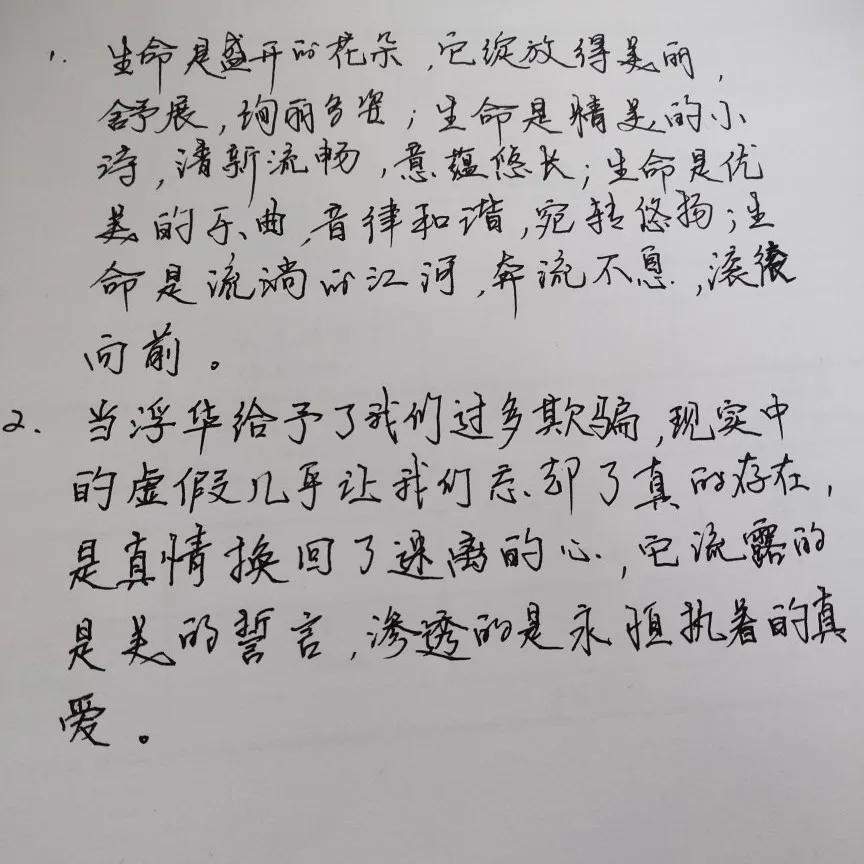 1. 生命是盛开的花朵，它绽放得美丽，
舒展，绚丽多姿；生命是精美的小
诗，清新流畅，意蕴悠长；生命是优
美的乐曲，音律和谐，宛转悠扬；生
命是流淌的江河，奔流不息，滚滚
向前。
2. 当浮华给予了我们过多欺骗，现实中
的虚假几乎让我们忘却了真的存在，
是真情换回了迷离的心，它流露的
是美的誓言，渗透的是永恒执着的真
爱。